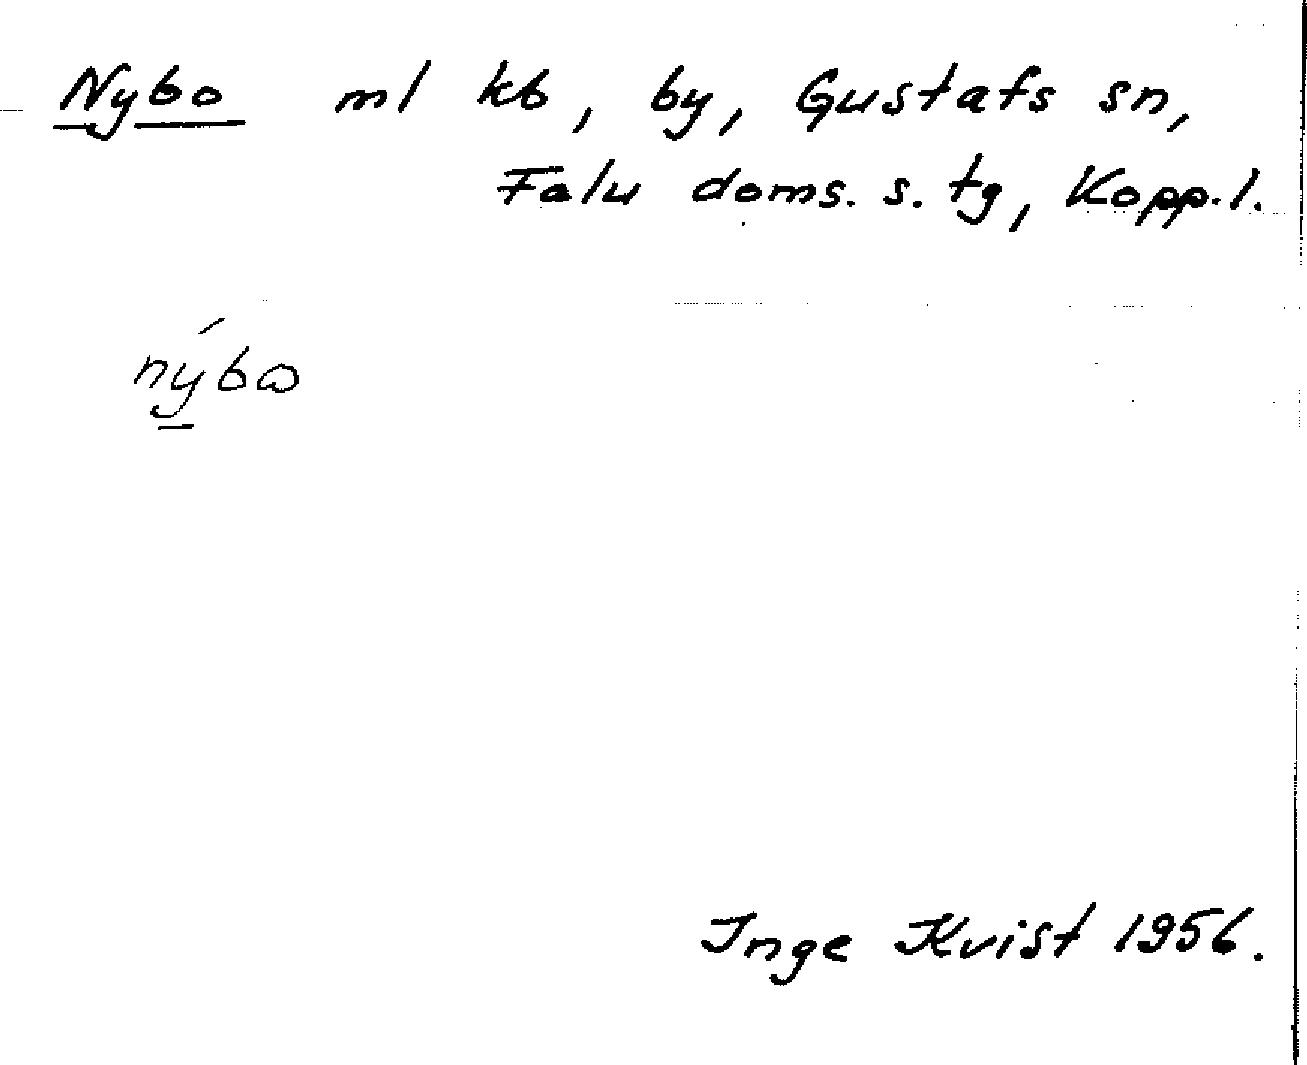 Nybo ml kb, by, Gustafs sn,
Falu doms. s. tg, Kopp. l.
nýbω
Inge Kvist 1956.